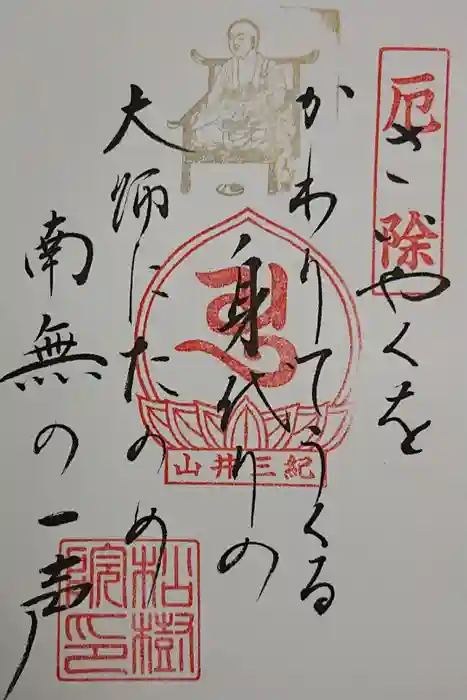 厄除
さいやくを
かわりてうくる
身代りの
大師にたのめ
南無の一声
紀三井山
松樹院印